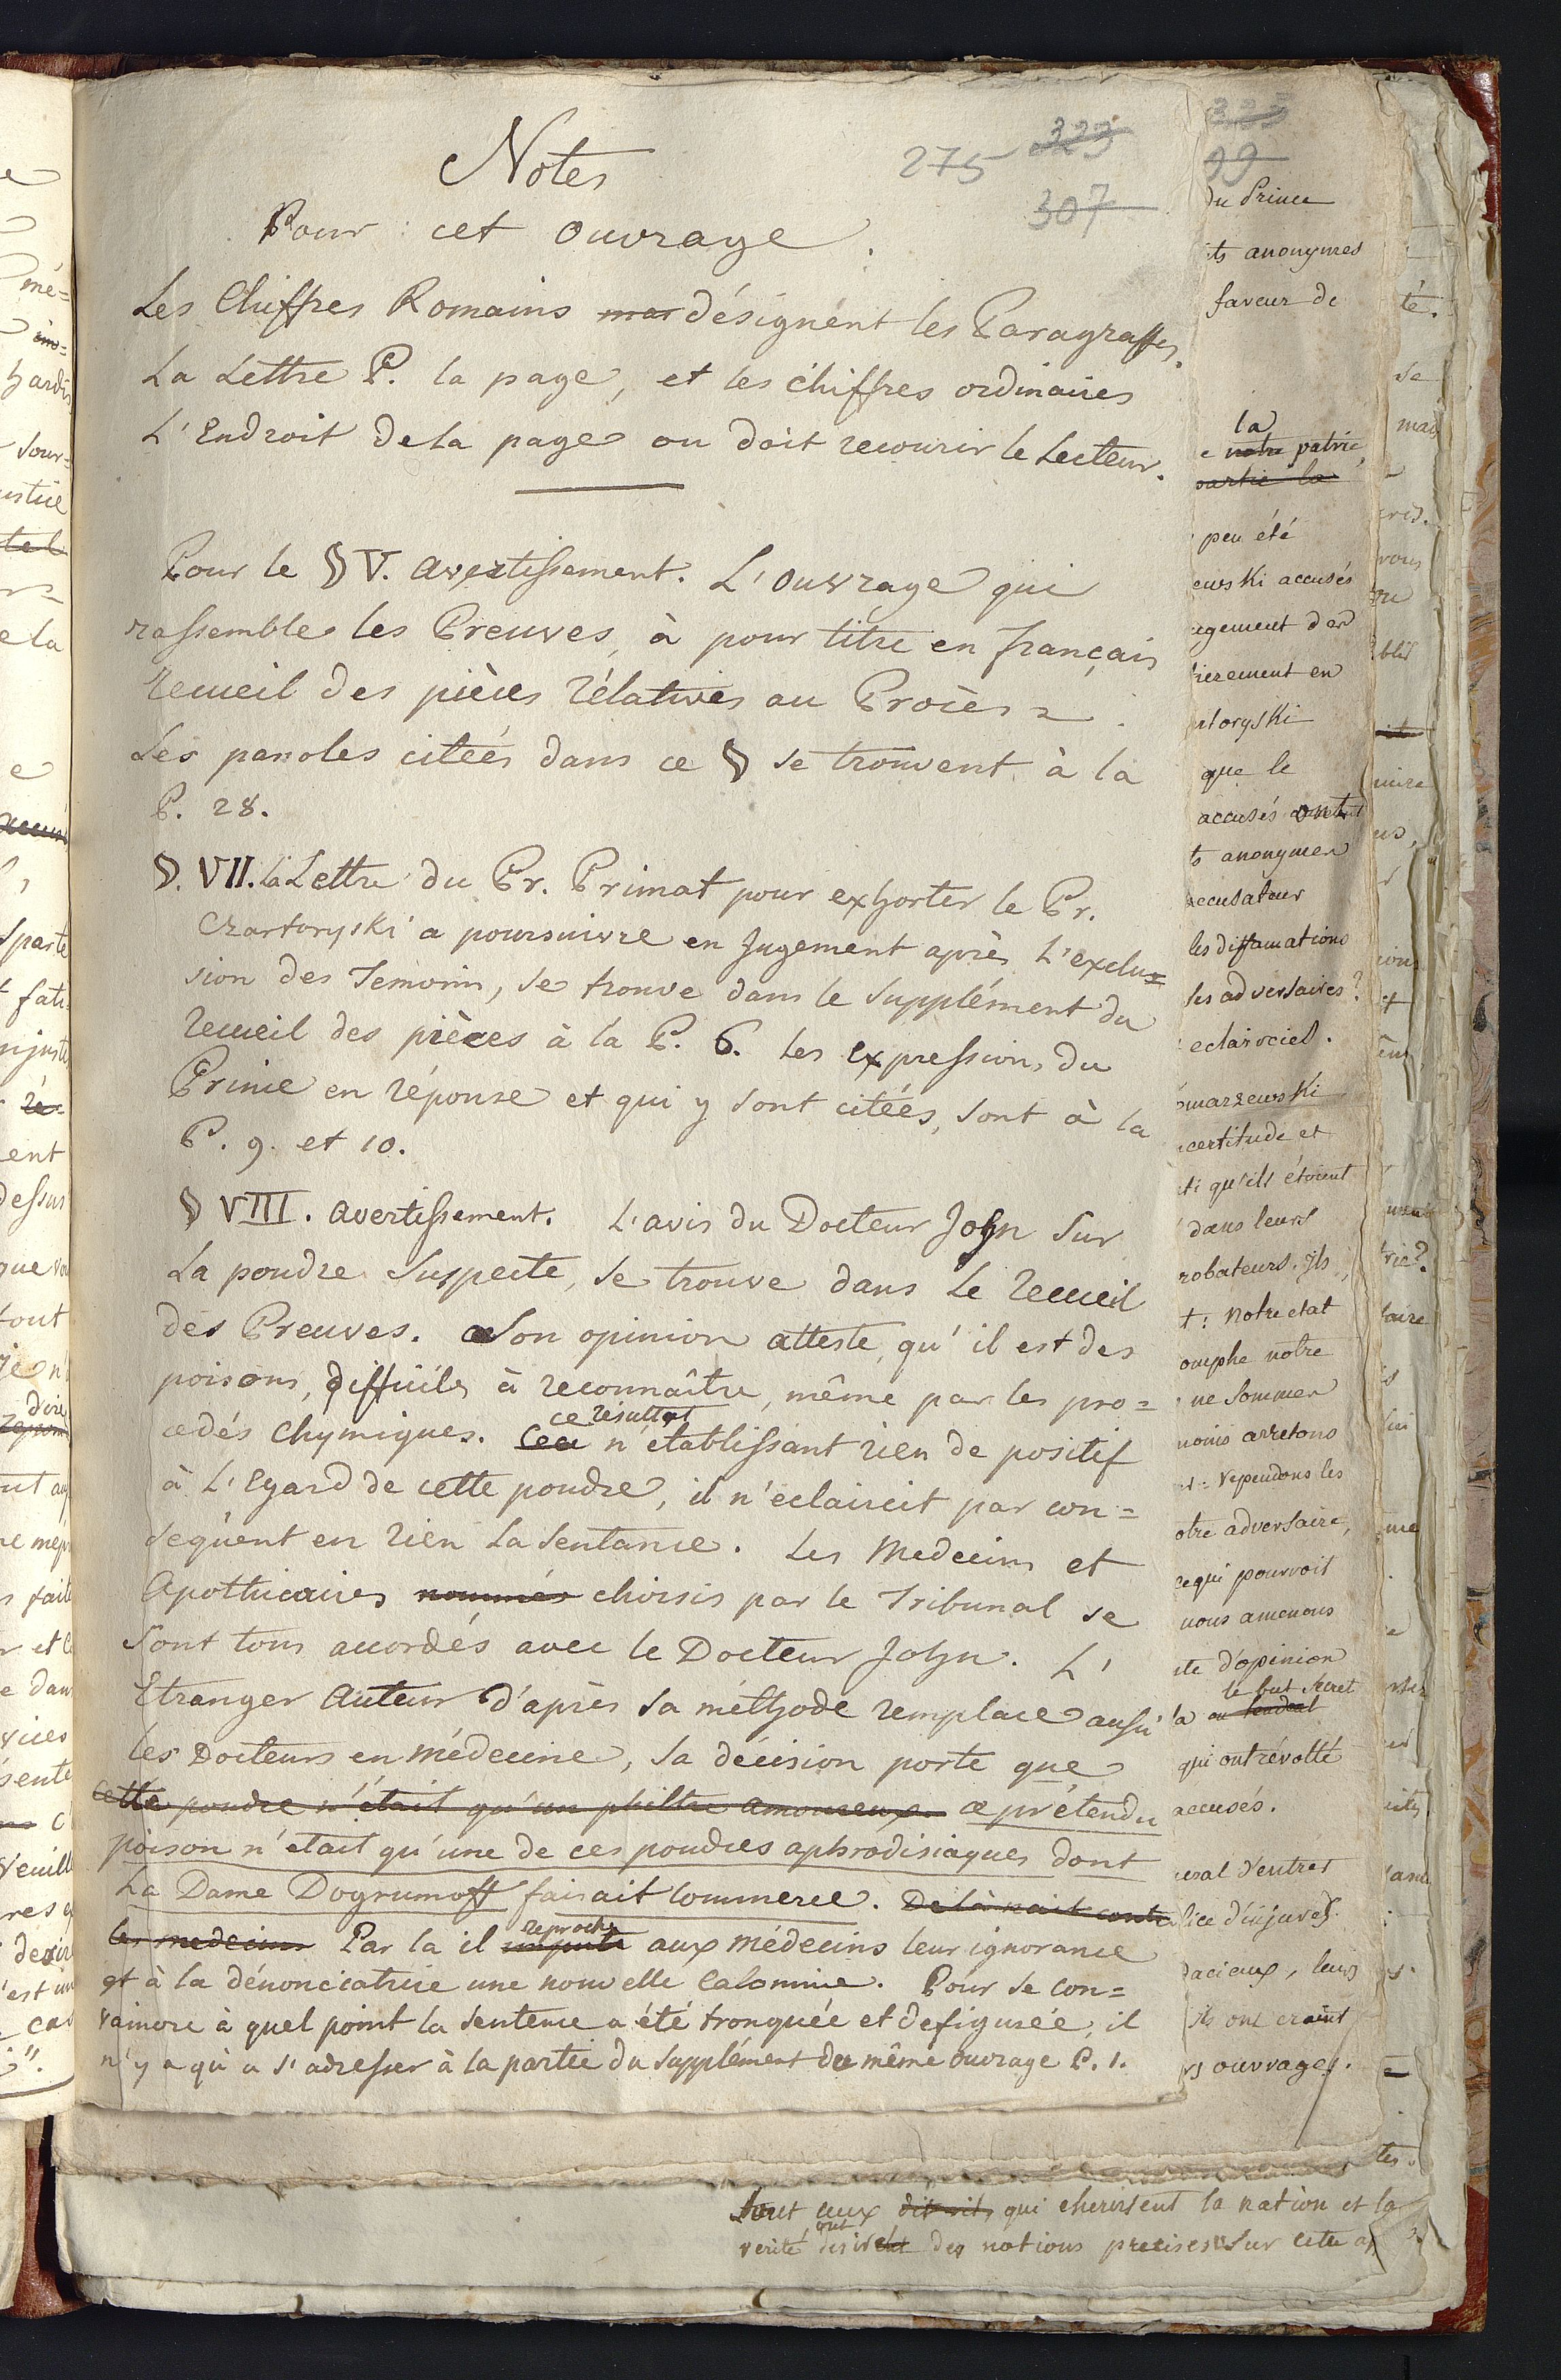 Notes
275 323
307
Pour cet ouvrage.
Les Chiffres Romains mar désignent les Paragraffes.
La Lettre P. la page, et les chiffres ordinaires
L'Endroit de la page ou doit recourir le Lecteur.
Pour le § V. avertissement. L'ouvrage qui
rassemble les Preuves, à pour titre en français
Recueil des pièces rélatives au Procès
Les paroles citeés dans ce § se trouvent à la
P. 28.
§. VII. la Lettre du Pr. Primat pour exhorter le Pr.
Czartoryski a poursuivre en Jugement après L'exclu=
sion des Temoins, se trouve dans le Supplément du
Recueil des pièces à la P. 6. les expressions du
Prince en réponse et qui y sont citeés, sont à la
P. 9. et 10.
§ VIII. avertissement. L'avis du Docteur John sur
La poudre Suspecte, se trouve dans le recueil
des Preuves. Son opinion atteste, qu'il est des
poisons, difficiles à reconnaître, même par les pro=
cedés chymiques. Ceci ce résultat n'etablissant rien de positif
à L'Egard de cette poudre, il n'eclaircit par con=
sequent en rien la Sentance. Les Medecins et
Apothicaires nommés choisis par le Tribunal se
sont tous accordés avec le Docteur John. L'
Etranger Auteur d'après sa méthode remplace aussi
les Docteurs en médecine, sa décision porte que
cette poudre n'était qu'un philtre amoureux. ce prétendu
poison n'etait qu'une de ces poudres aphrodisiaques dont
La Dame Dogrumoff faisait commerce. De là nait contre
les medecins Par la il impute reproche aux médecins leur ignorance
et à la dénonciatrice une nouvelle Calomnie. Pour se con=
vaincre à quel point la sentence a été tronquée et defigurée, il
n'y a qu'a s'adresser à la partie du Supplément du même ouvrage P. 1.
323
99
du Prince
ts anonymes
faveur de
la
notre patrie,
partie la
peu été
ewski accusés
ugement d'ar
rierement en
rtoryski
que le
accusés ont
ts anonymes
accusateur
les diffamations
les adversaires?
eclaircies.
omarzewski
certitude et
ti qu'ils étoient
dans leurs
robateurs. Ils
t: notre etat
omphe notre
ne sommes
nous arretons
rependons les
otre adversaire,
ce qui pourroit
nous amenons
ite d'opinion
le but secret
qui ont révolté
accusés.
eral d'entrer
lice d'injures.
dacieux, leurs
ils ont craint
rs ouvrages.
ceux qui cherissent la nation et la
verité des notions precises sur cette